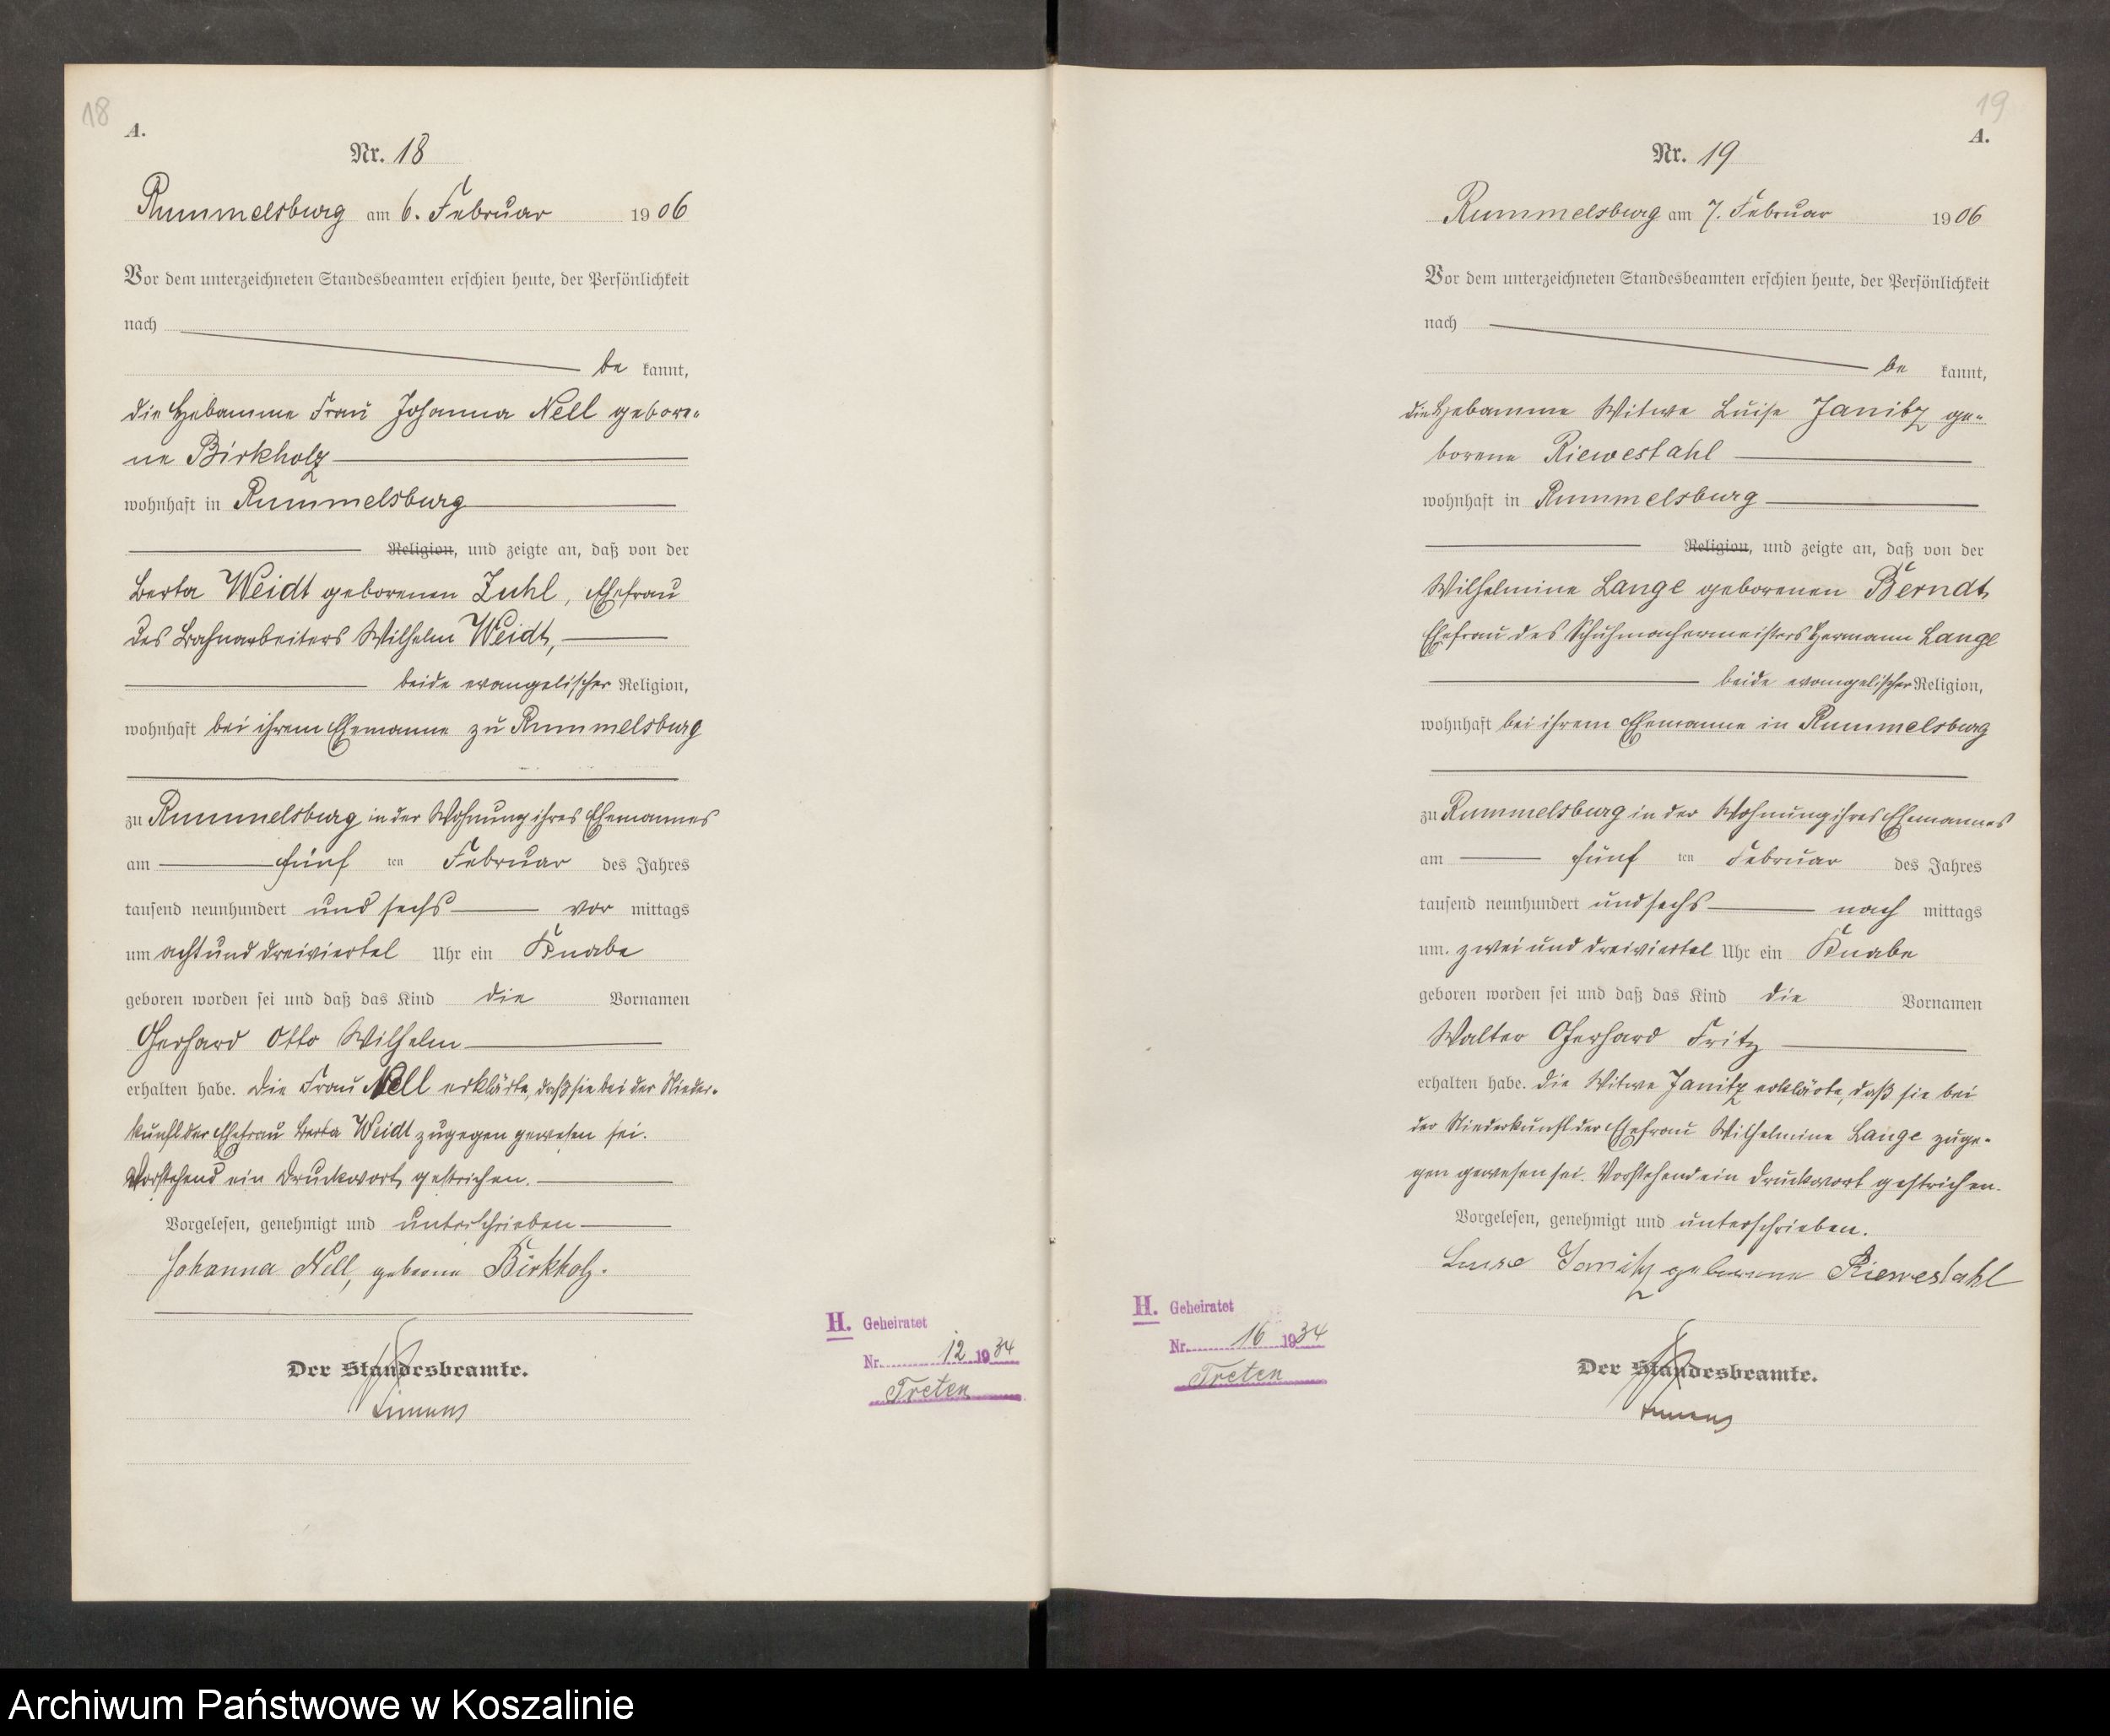 18
A.
Nr. 18
Rummelsburg am 6. Februar 1906
Vor dem unterzeichneten Standesbeamten erschien heute, der Persönlichkeit
nach
be kannt,
die Hebamme Frau Johanna Nell gebore-
ne Birkholz
wohnhaft in Rummelsburg
Religion, und zeigte an, daß von der
Berta Weidt geborenen Zuhl, Ehefrau
des Bahnarbeiters Wilhelm Weidt,
beide evangelischer Religion,
wohnhaft bei ihrem Ehemanne zu Rummelsburg
zu Rummelsburg in der Wohnung ihres Ehemannes
am fünf ten Februar des Jahres
tausend neunhundert und sechs vor mittags
um acht und dreiviertel Uhr ein Knabe
geboren worden sei und daß das Kind die Vornamen
Gerhard Otto Wilhelm
erhalten habe. Die Frau Nell erklärte, daß sie bei der Nieder-
kunft der Ehefrau Berta Weidt zugegen gewesen sei.
Vorstehend ein Druckwort gestrichen.
Vorgelesen, genehmigt und unterschrieben
Johanna Nell, geborne Birkholz.
Der Standesbeamte.
H. Geheiratet
Nr. 12 1934
Treten
19
A.
Nr. 19
Rummelsburg am 7. Februar 1906
Vor dem unterzeichneten Standesbeamten erschien heute, der Persönlichkeit
nach
be kannt,
die Hebamme Witwe Luise Janitz ge-
borene Riewestahl
wohnhaft in Rummelsburg
Religion, und zeigte an, daß von der
Wilhelmine Lange geborenen Berndt,
Ehefrau des Schuhmachermeisters Hermann Lange
beide evangelischer Religion,
wohnhaft bei ihrem Ehemanne in Rummelsburg
zu Rummelsburg in der Wohnung ihres Ehemannes
am fünf ten Februar des Jahres
tausend neunhundert und sechs nach mittags
um zwei und dreiviertel Uhr ein Knabe
geboren worden sei und daß das Kind die Vornamen
Walter Gerhard Fritz
erhalten habe. Die Witwe Janitz erklärte, daß sie bei
der Niederkunft der Ehefrau Wilhelmine Lange zuge-
gen gewesen sei. Vorstehend ein Druckwort gestrichen.
Vorgelesen, genehmigt und unterschrieben.
Luise Janitz geborene Riewestahl
Der Standesbeamte.
H. Geheiratet
Nr. 16 1934
Treten
Archiwum Państwowe w Koszalinie